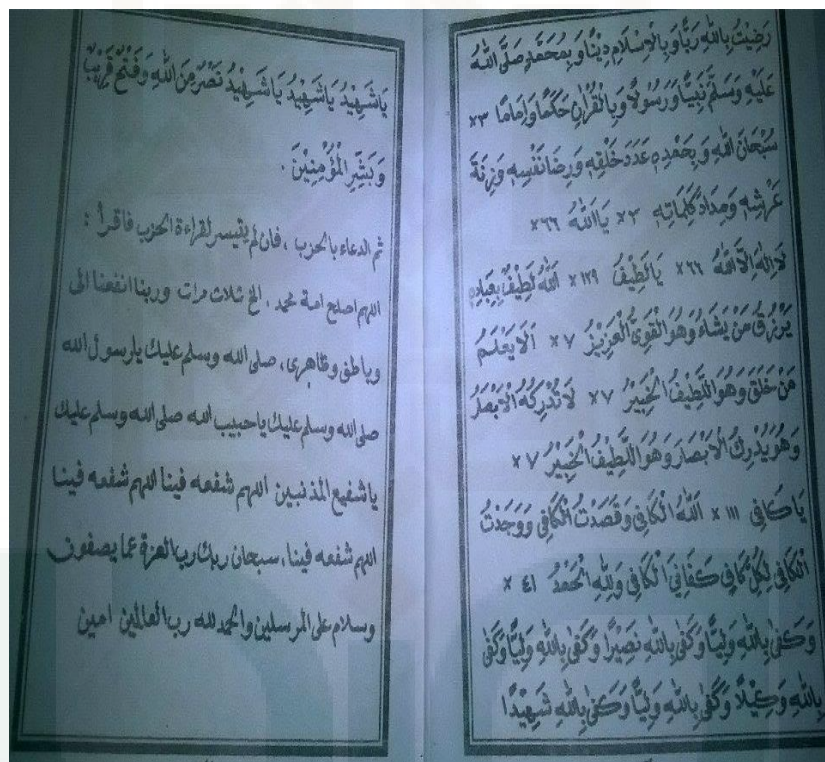 رَضِيْتُ بِاللهِ رَبًّا وَبِالْاِسْلَامِ دِيْنًا وَبِمُحَمَّدٍ صَلَّى اللهُ
عَلَيْهِ وَسَلَّمَ نَبِيًّا وَرَسُوْلًا وَبِالْقُرْاٰنِ حَكَمًا وَاِمَامًا ×٣
سُبْحَانَ اللهِ وَبِحَمْدِهِ عَدَدَ خَلْقِهِ وَرِضَا نَفْسِهِ وَزِنَةَ
عَرْشِهِ وَمِدَادَ كَلِمَاتِهِ ×٣ يَا اَللهُ ×٦٦
لَا اِلٰهَ اِلَّا اللهُ ×٦٦ يَا لَطِيْفُ ×١٢٩ اَللهُ لَطِيْفٌ بِعِبَادِهِ
يَرْزُقُ مَنْ يَشَاءُ وَهُوَ الْقَوِيُّ الْعَزِيْزُ ×٧ اَلَا يَعْلَمُ
مَنْ خَلَقَ وَهُوَ اللَّطِيْفُ الْخَبِيْرُ ×٧ لَا تُدْرِكُهُ الْاَبْصَارُ
وَهُوَ يُدْرِكُ الْاَبْصَارَ وَهُوَ اللَّطِيْفُ الْخَبِيْرُ ×٧
يَا كَافِى ×١١١ اَللهُ الْكَافِى وَقَصَدْتُ الْكَافِى وَوَجَدْتُ
الْكَافِى لِكُلٍّ كَافِى كَفَانِيَ الْكَافِى وَلِلّٰهِ الْحَمْدُ ×٤١
وَكَفٰى بِاللهِ وَلِيًّا وَكَفٰى بِاللهِ نَصِيْرًا وَكَفٰى بِاللهِ وَلِيًّا وَكَفٰى
بِاللهِ وَكِيْلًا وَكَفٰى بِاللهِ وَلِيًّا وَكَفٰى بِاللهِ شَهِيْدًا
يَا شَهِيْدُ يَا شَهِيْدُ يَا شَهِيْدُ نَصْرٌ مِنَ اللهِ وَفَتْحٌ قَرِيْبٌ
وَبَشِّرِ الْمُؤْمِنِيْنَ .
ثم الدعاء بالحزب ، فان لم يتيسر لقراءة الحزب فاقرأ :
اللهم اصلح امة محمد ، الخ ثلاث مرات وربنا انفعنا الى
وباطنى وظاهرى، صلى الله وسلم عليك يارسول الله
صلى الله وسلم عليك ياحبيب الله صلى الله وسلم عليك
ياشفيع المذنبين اللهم شفعه فينا اللهم شفعه فينا
اللهم شفعه فينا، سبحان ربك رب العزة عما يصفون
وسلام على المرسلين والحمد لله رب العالمين امين